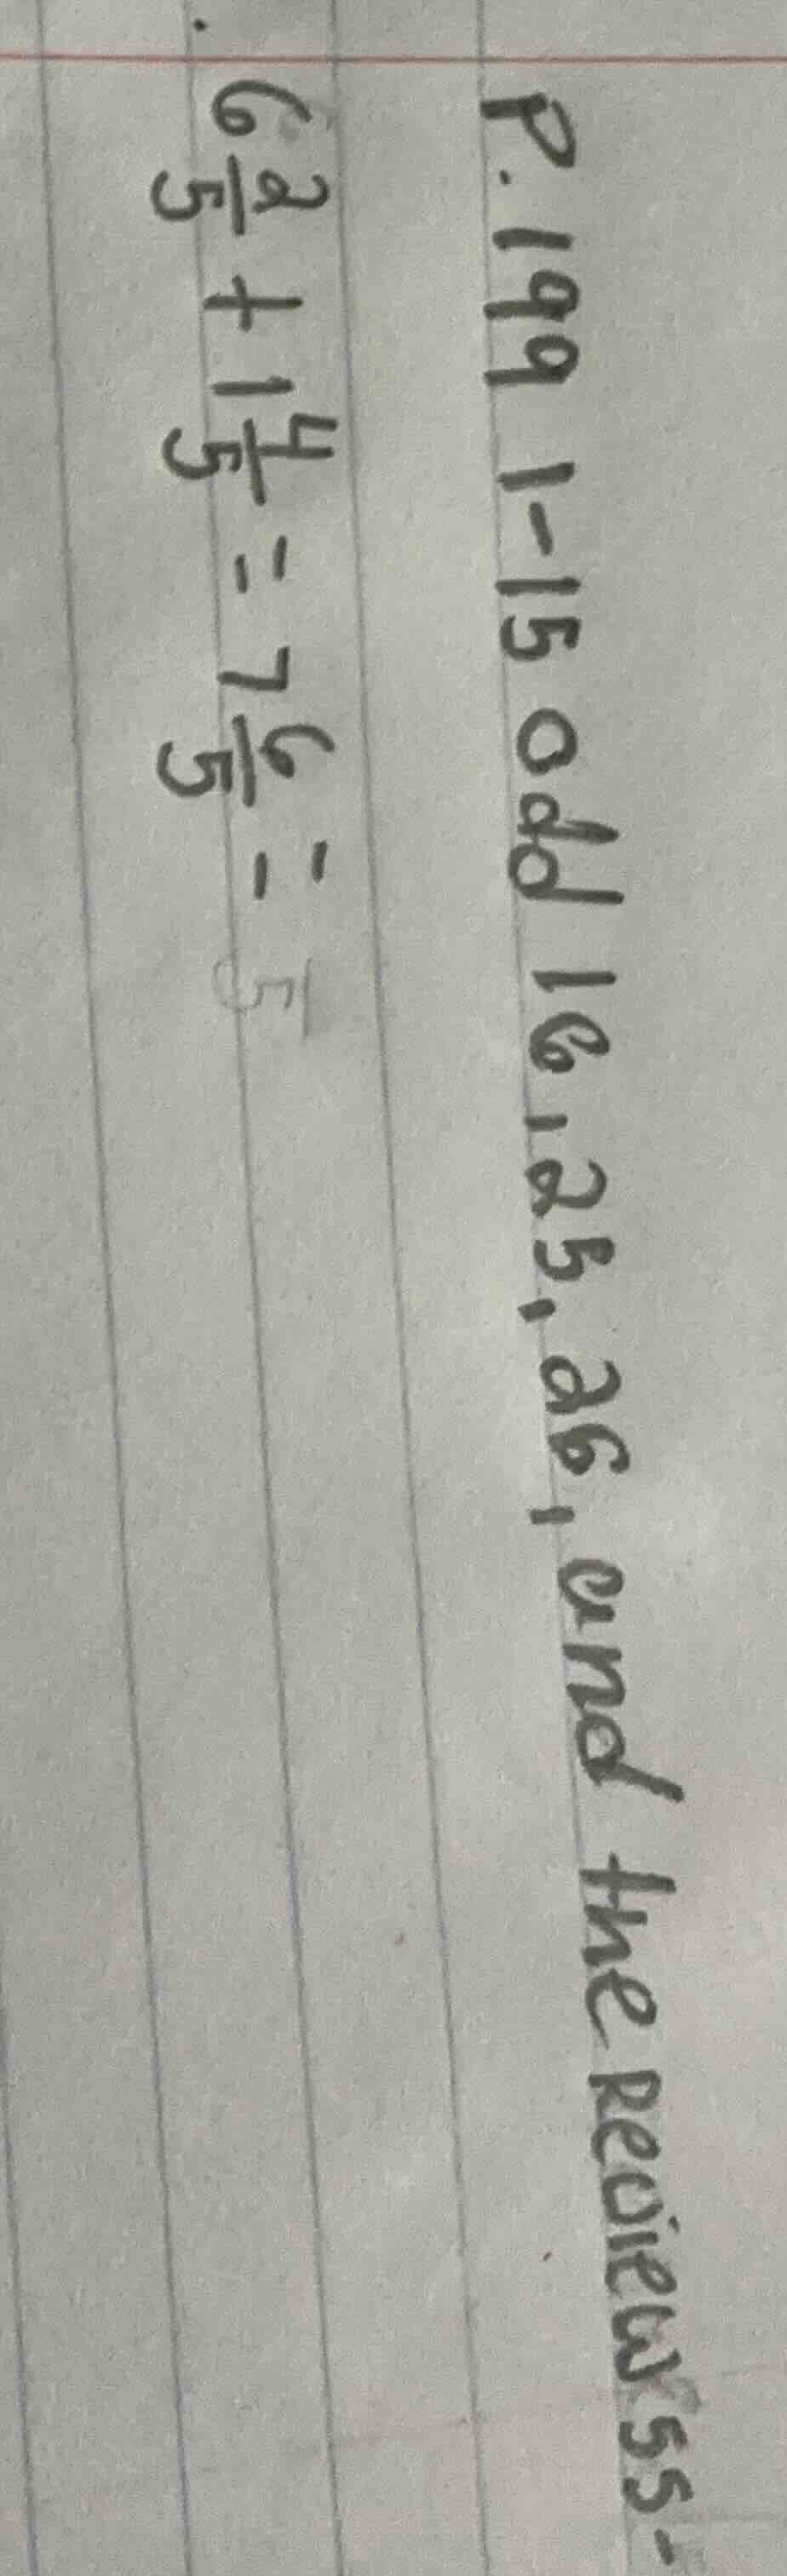 P. 199 1-15 odd 16, 25, 26, and the Reviews 55-
6 2/5 + 1 4/5 = 7 6/5 = /5